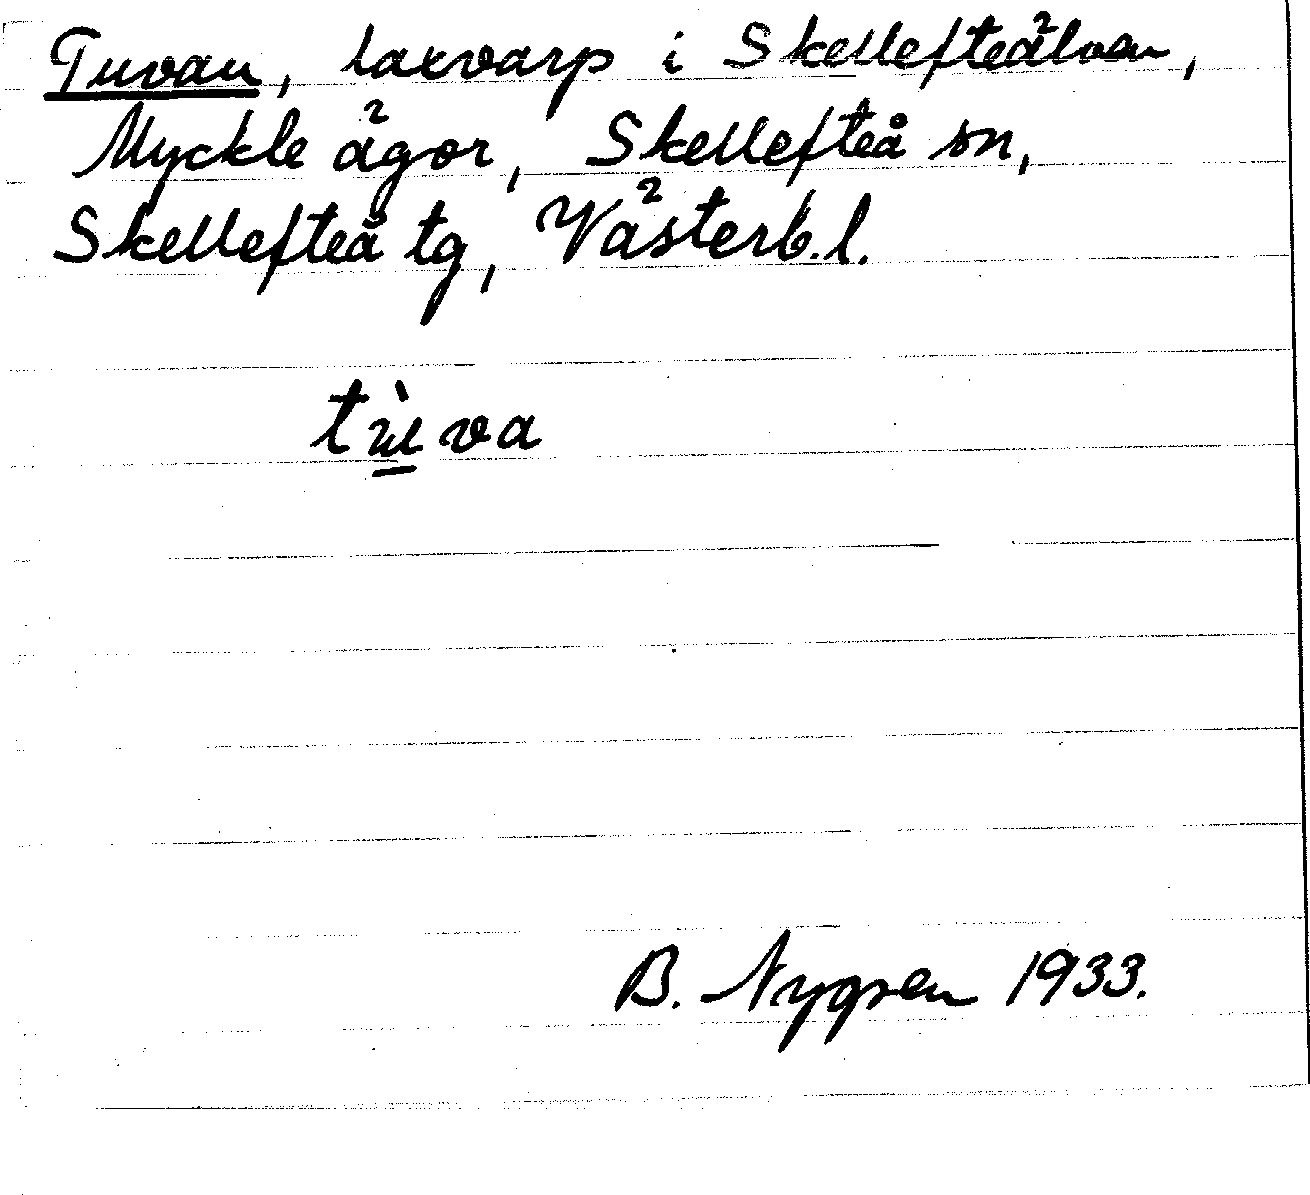 Tuvan, laxvarp i Skellefteälven,
Myckle ägor, Skellefteå sn,
Skellefteå tg, Västerb. l.
tù̲va
B. Nygren 1933.